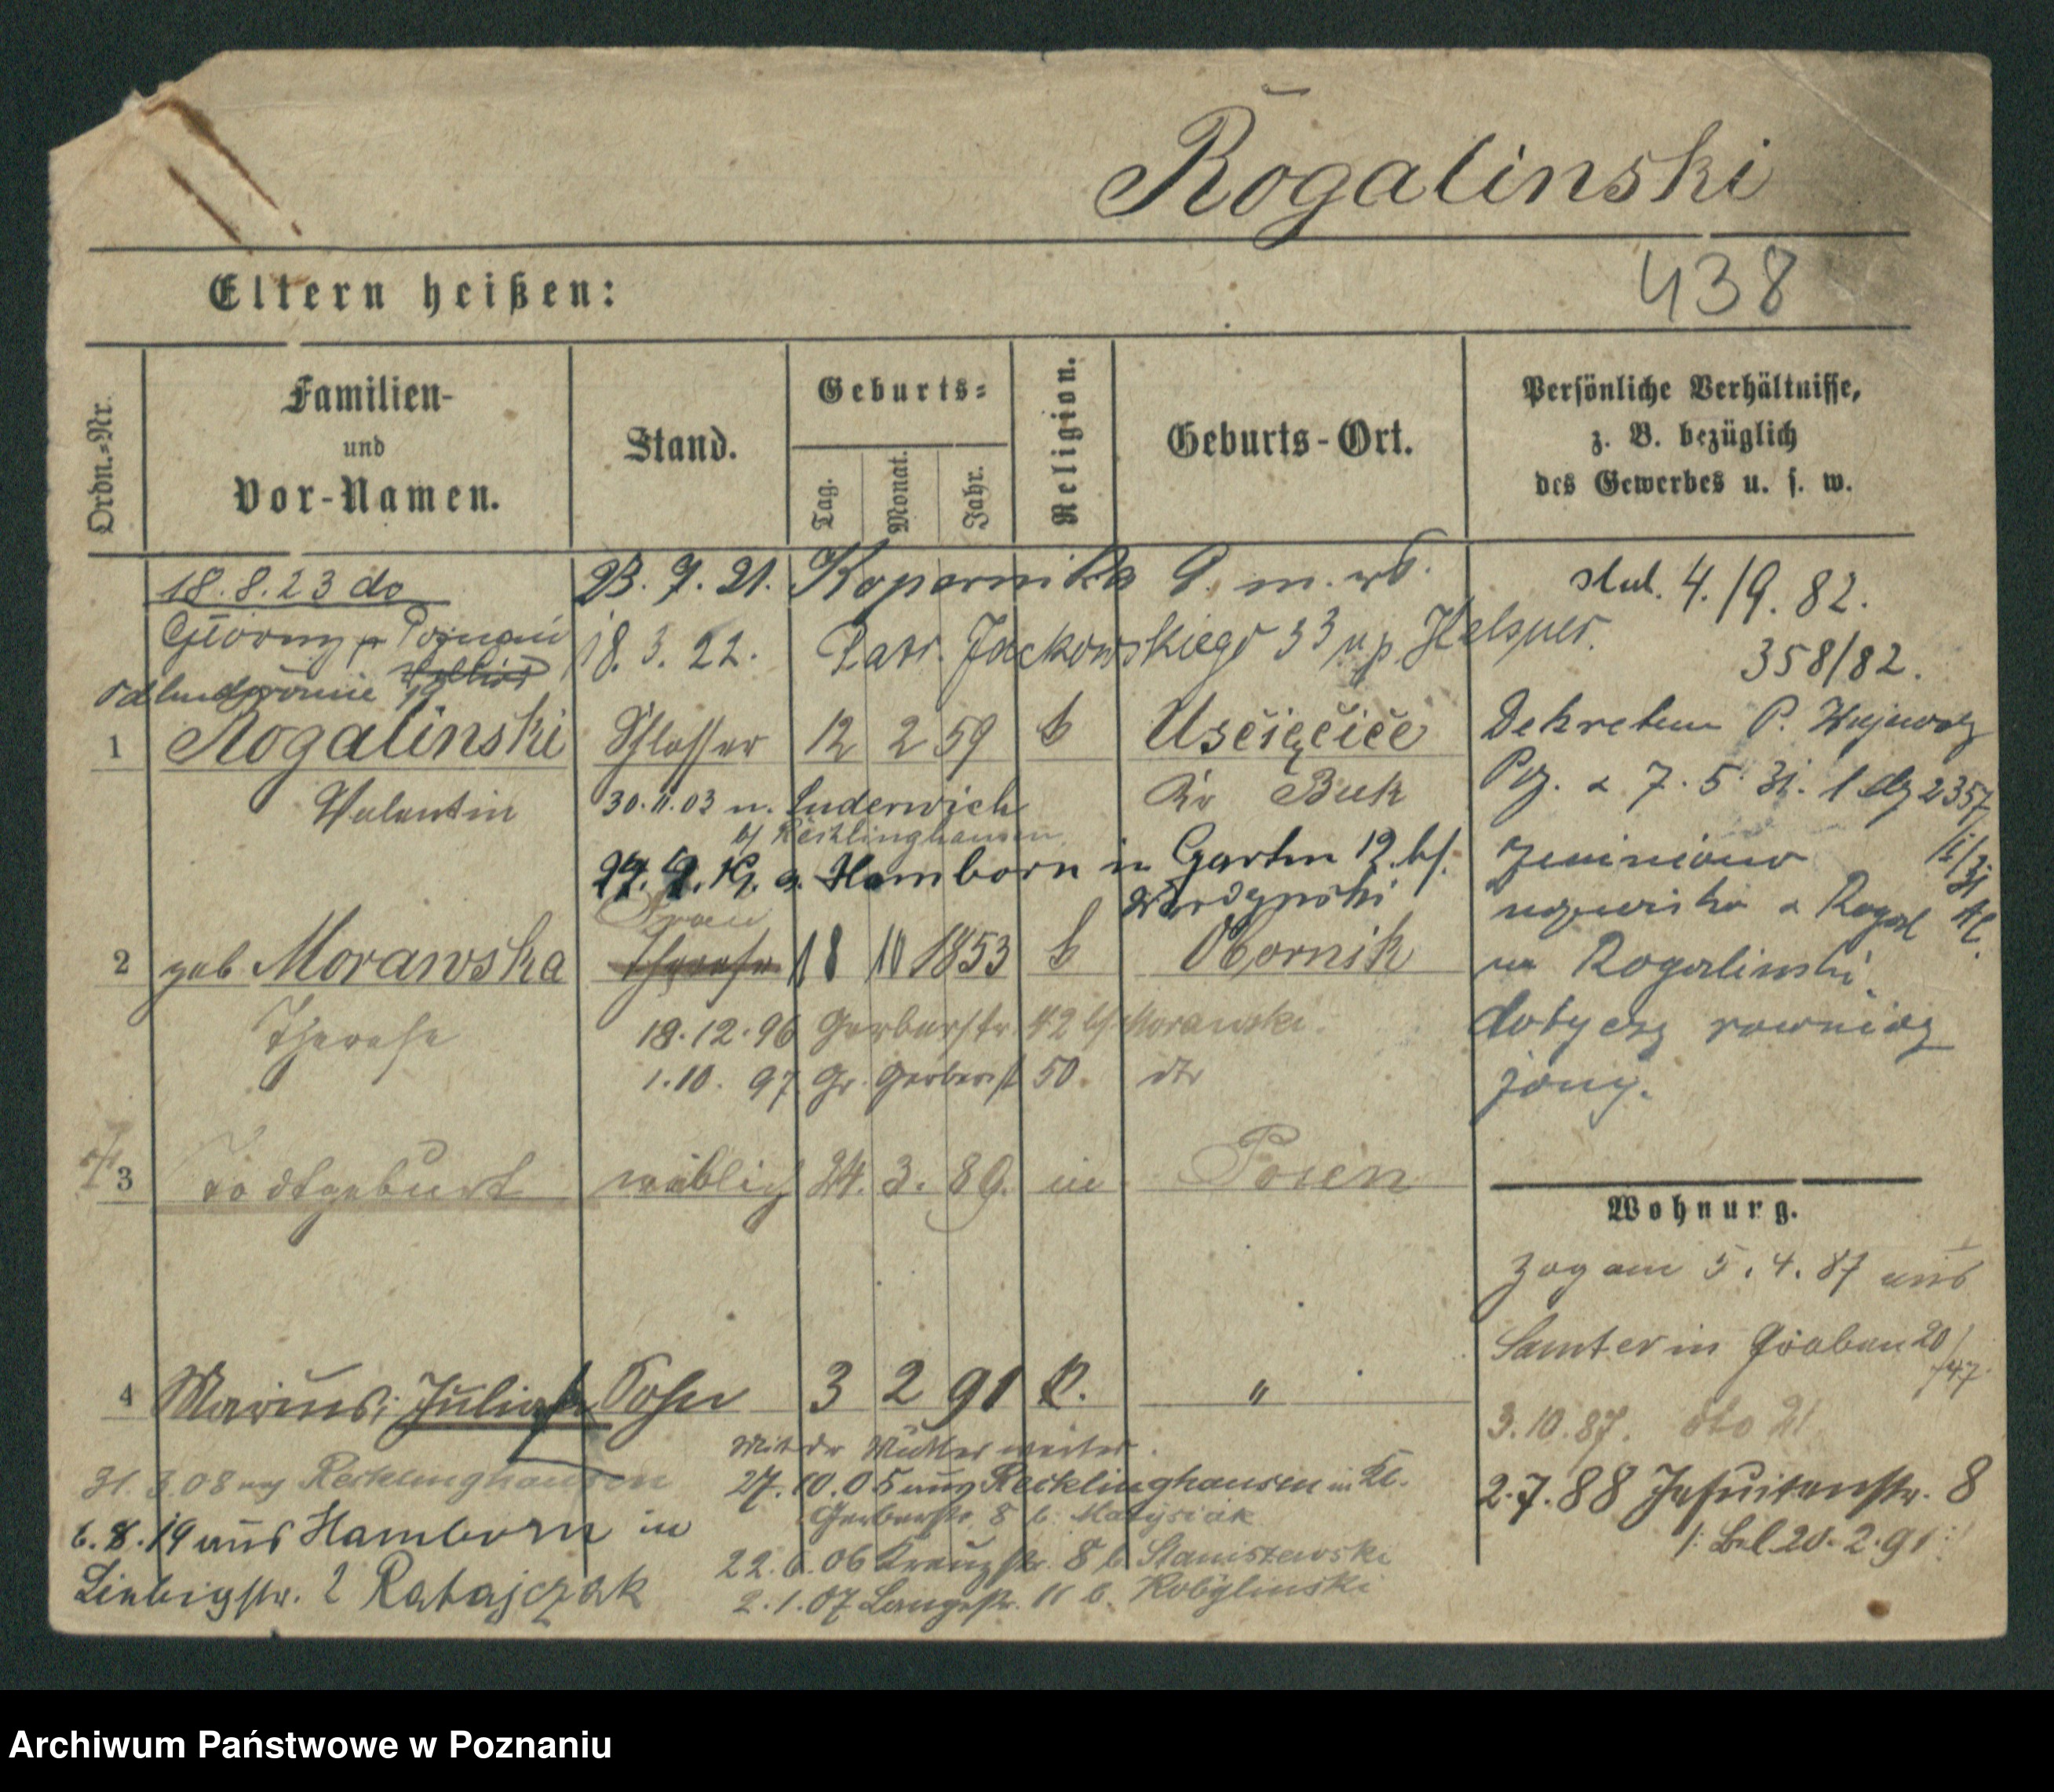 Rogalinski
438
Eltern heißen:
Ordn.-Nr.
Familien-
und
Vor-Namen.
Stand.
Geburts-
Tag.
Monat.
Jahr.
Religion.
Geburts-Ort.
Persönliche Verhältnisse,
z. B. bezüglich
des Gewerbes u. s. w.
18.8.23 do
Poznań
23. 7. 21. Kopernika 9. m.
18. 3. 22. Jackowskiego 33
4./9. 82.
358/82.
1 Rogalinski Schlosser 12 2 59 k Uscięcice
Valentin
Kr Buk
30.11.03 n. Suderwich
b/ Recklinghausen
a. Hamborn in Garten 12. b/.
Dekretem P. Wojewody
Poz. z 7. 5. 31. l. dz 2357
zmieniono
nazwisko z Rogal
na Rogalinski
dotyczy również
żony.
Frau
2 geb. Morawska Therese 18 10 1853 k Obornik
Therese
18.12.96 Gerberstr 42 b/ Morawski
1.10. 97 Gr. Gerberst 50. dto
3 Todtgeburt weiblich 24. 3. 89. in Posen
Wohnung.
Zog am 5. 4. 87 aus
Samter in Graben 20
3.10.87. dto 21
2.7.88 Jesuitenstr. 8
20. 2. 91
4 Marius, Julian Sohn 3 2 91 k. "
Mit der Mutter weiter.
31. 3. 08 Recklinghausen
27.10.05 aus Recklinghausen in Kl.
Gerberstr. 8 b. Matysiak
6.8.19 aus Hamborn in
22.6.06 Kreuzstr. 8 b Staniszewski
Liebigstr. 2 Ratajczak
2.1.07 Langestr. 11 b. Kobylinski
Archiwum Państwowe w Poznaniu